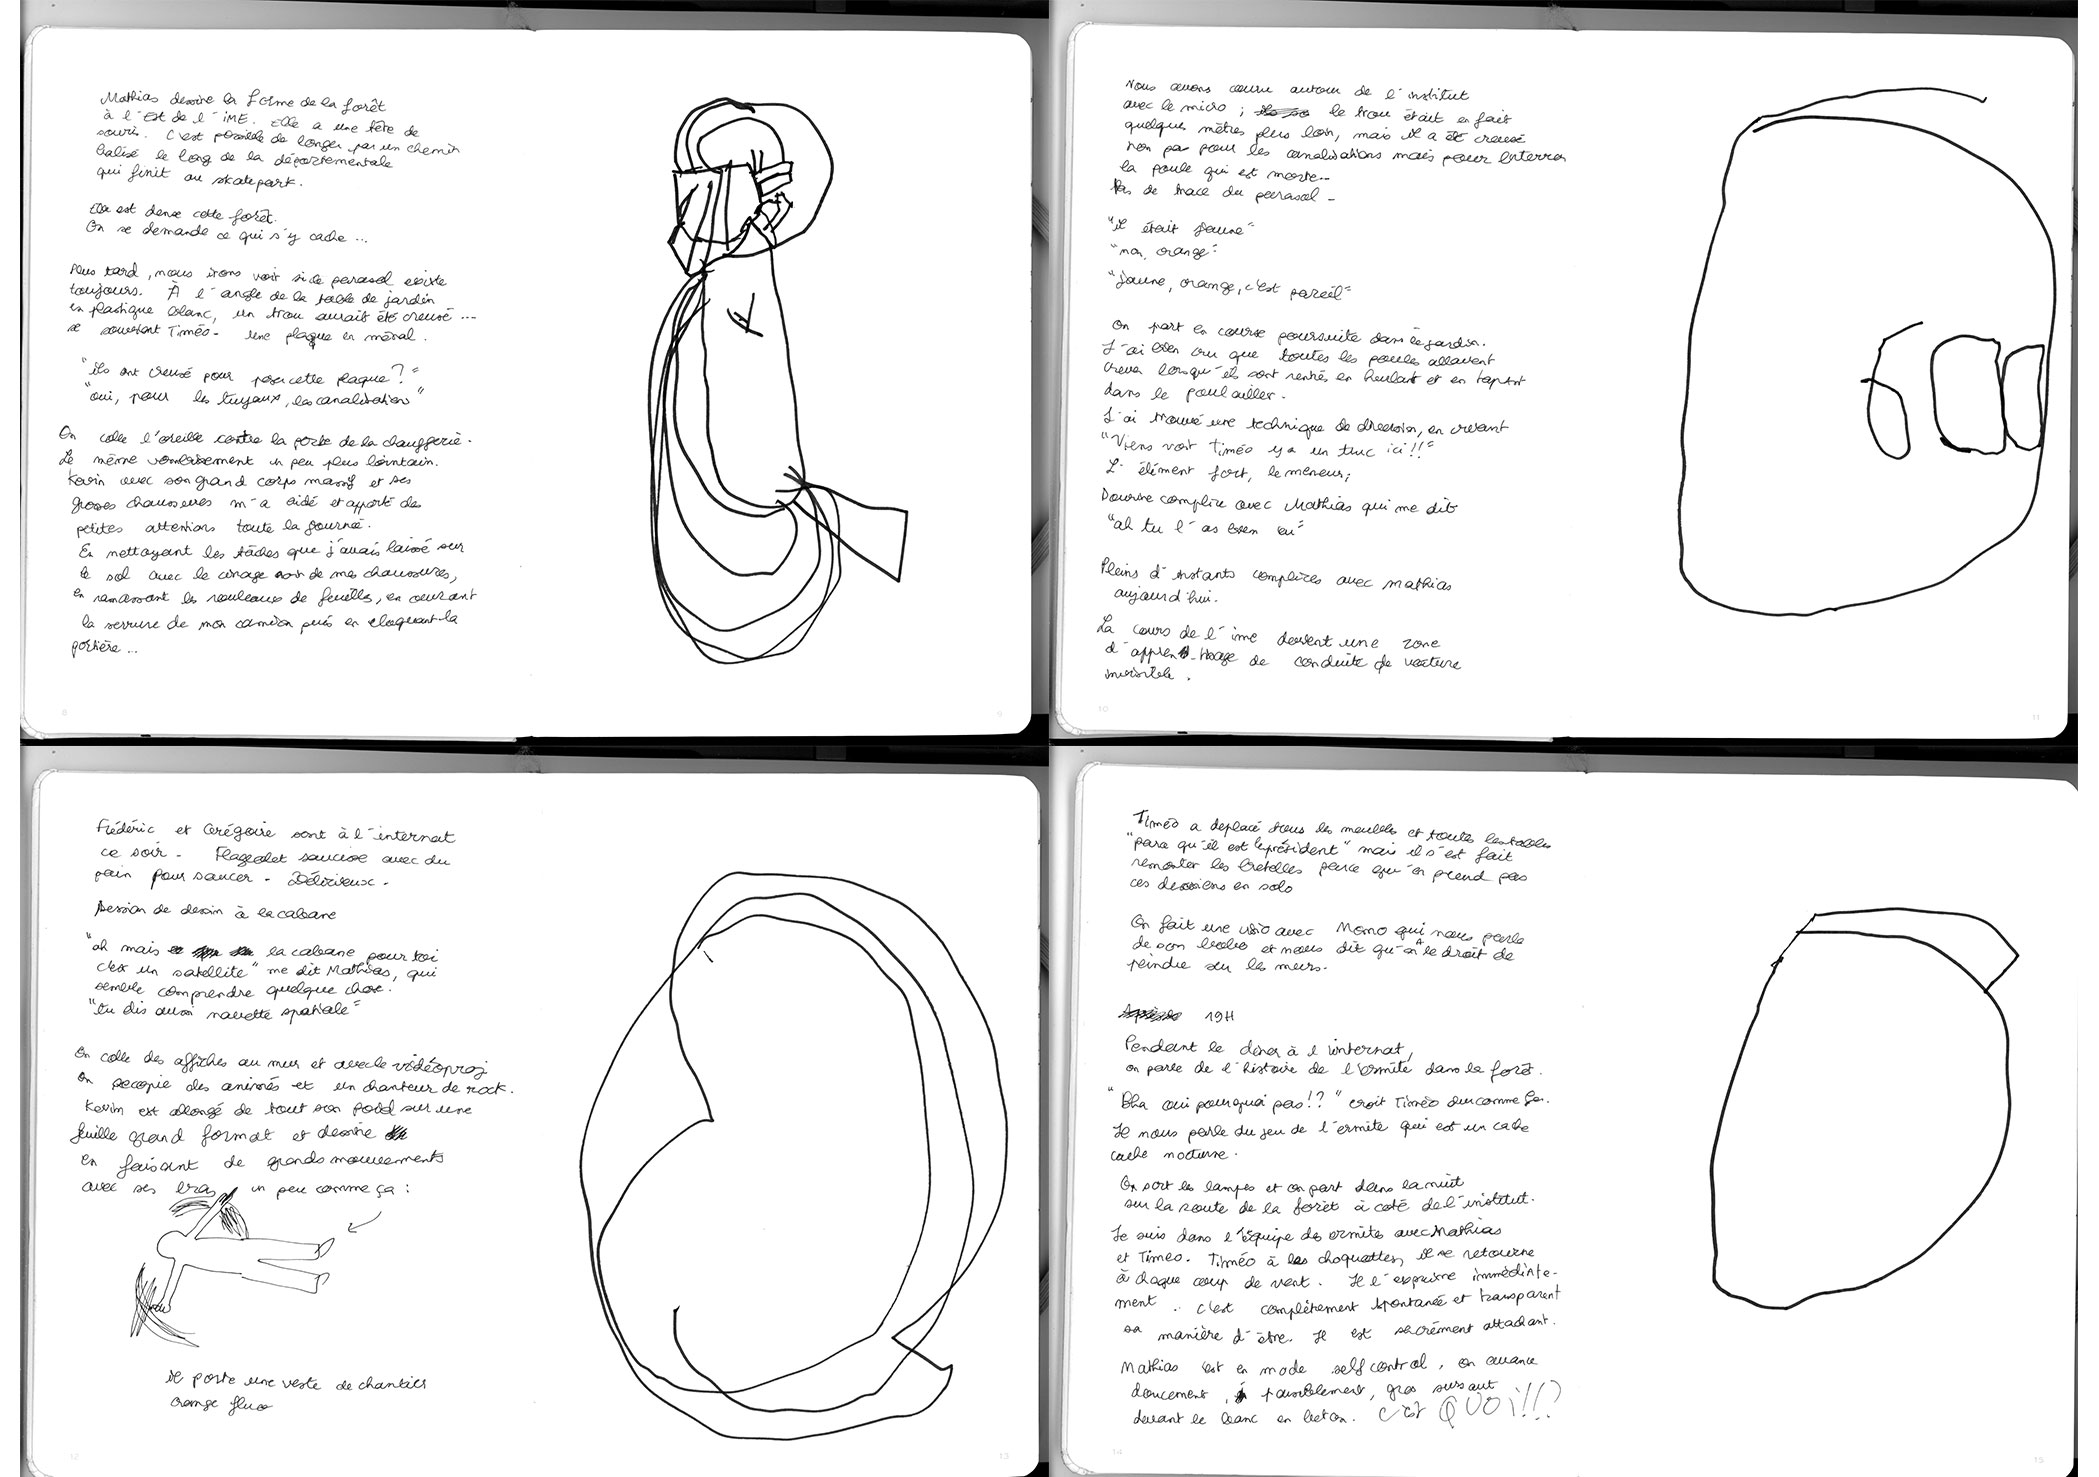 Mathias dessine la forme de la forêt
à l'Est de l'IME. Elle a une tête de
souris. C'est possible de longer par un chemin
balisé le long de la départementale
qui finit au skatepark.
Elle est dense cette forêt.
On se demande ce qui s'y cache ...
Plus tard, nous irons voir si le parasol existe
toujours. À l'angle de la table de jardin
en plastique blanc, un trou aurait été creusé ...
se souvient Timéo - une plaque en métal.
"ils ont creusé pour poser cette plaque ?"
"oui, pour les tuyaux, les canalisations"
On colle l'oreille contre la porte de la chaufferie.
Le même vombrissement un peu plus lointain.
Kevin avec son grand corps massif et ses
grosses chaussures m'a aidé et apporté des
petites attentions toute la journée.
En nettoyant les tâches que j'avais laissé sur
le sol avec le cirage noir de mes chaussures,
en ramassant les rouleaux de feuilles, en ouvrant
la serrure de mon camion puis en claquant la
portière ...
8
9
Nous avons couru autour de l'institut
avec le micro ; le trou était en fait
quelques mètres plus loin, mais il a été creusé
non pas pour les canalisations mais pour enterrer
la poule qui est morte...
Pas de trace du parasol -
"il était jaune"
"non, orange"
"jaune, orange, c'est pareil"
On part en course poursuite dans le jardin.
J'ai bien cru que toutes les poules allaient
crever lorsqu'ils sont rentrés en hurlant et en tapant
dans le poulailler.
J'ai trouvé une technique de diversion, en criant
"Viens voir Timéo y a un truc ici !!"
L'élément fort, le meneur,
Devenue complice avec Mathias qui me dit
"ah tu l'as bien eu"
Pleins d'instants complices avec Mathias
aujourd'hui.
La cours de l'ime devient une zone
d'apprentissage de conduite de voiture
invisible.
10
11
Frédéric et Grégoire sont à l'internat
ce soir - Flageolet saucisse avec du
pain pour saucer - Délicieux -
Session de dessin à la cabane
"ah mais la cabane pour toi
c'est un satellite" me dit Mathias, qui
semble comprendre quelque chose.
"tu dis aussi navette spatiale"
On colle des affiches au mur et avec le vidéoproj
on recopie des animés et un chanteur de rock.
Kevin est allongé de tout son poid sur une
feuille grand format et dessine
en faisant de grands mouvements
avec ses bras, un peu comme ça :
Il porte une veste de chantier
orange fluo
12
13
Timéo a deplacé tous les meubles et toutes les tables
"para qu'il est le président" mais il s'est fait
remonter les bretelles parce qu'on prend pas
ces décisions en solo
On fait une visio avec Momo qui nous parle
de son boulot et nous dit qu'on a le droit de
peindre sur les murs.
19H
Pendant le dîner à l'internat,
on parle de l'histoire de l'ermite dans la forêt.
"Bha oui pourquoi pas !?" croit Timéo dur comme fer.
Il nous parle du jeu de l'ermite qui est un cache
cache nocturne.
On sort les lampes et on part dans la nuit
sur la route de la forêt à coté de l'institut.
Je suis dans l'équipe des ermites avec Mathias
et Timéo. Timéo à les choquottes, il se retourne
à chaque coup de vent. Il l'exprime immédiate-
ment. c'est complètement spontanée et transparent
sa manière d'être. Il est sacrément attachant.
Mathias est en mode self control, on avance
doucement, paisiblement, gros sursaut
devant le banc en béton. C'est QUOI !!?
14
15